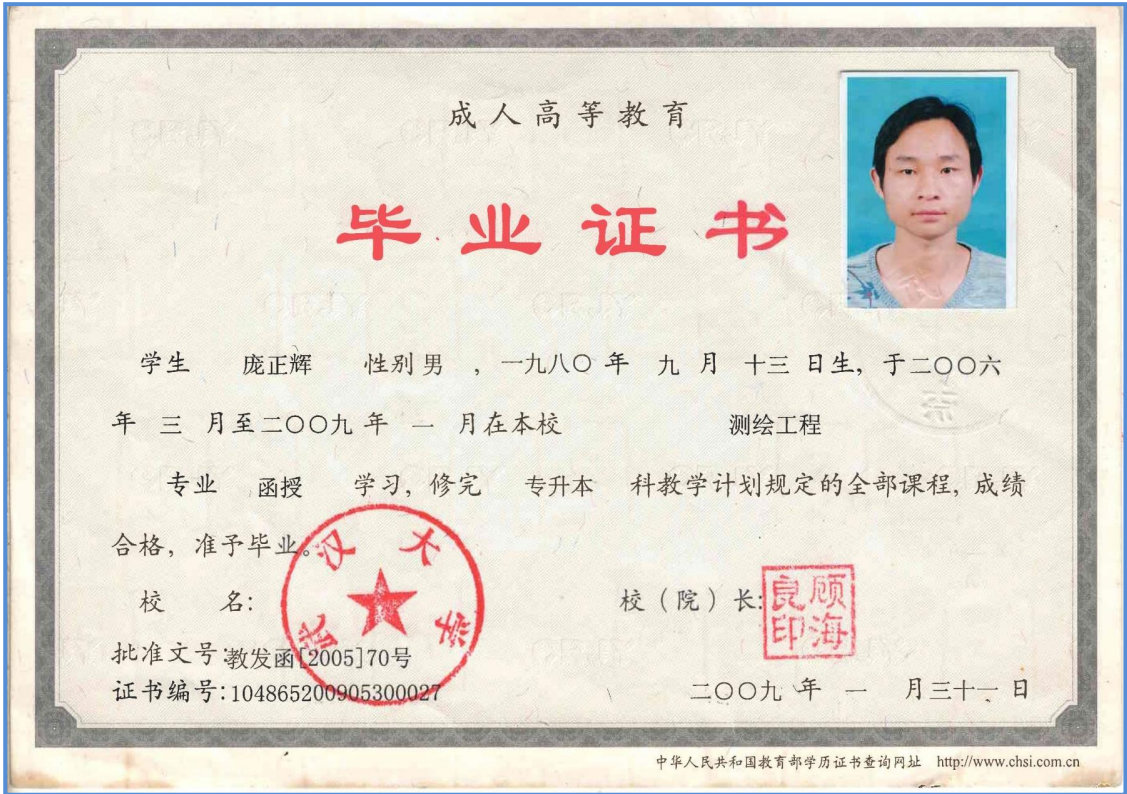 成人高等教育
毕业证书
学生 庞正辉 性别 男 , 一九八〇 年 九 月 十三 日生, 于二〇〇六
年 三 月至二〇〇九 年 一 月在本校 测绘工程
专业 函授 学习, 修完 专升本 科教学计划规定的全部课程, 成绩
合格, 准予毕业。
武汉大学
校 名: 校(院)长: 顾海良印
批准文号:教发函[2005]70号
证书编号:104865200905300027 二〇〇九 年 一 月三十一 日
中华人民共和国教育部学历证书查询网址 http://www.chsi.com.cn